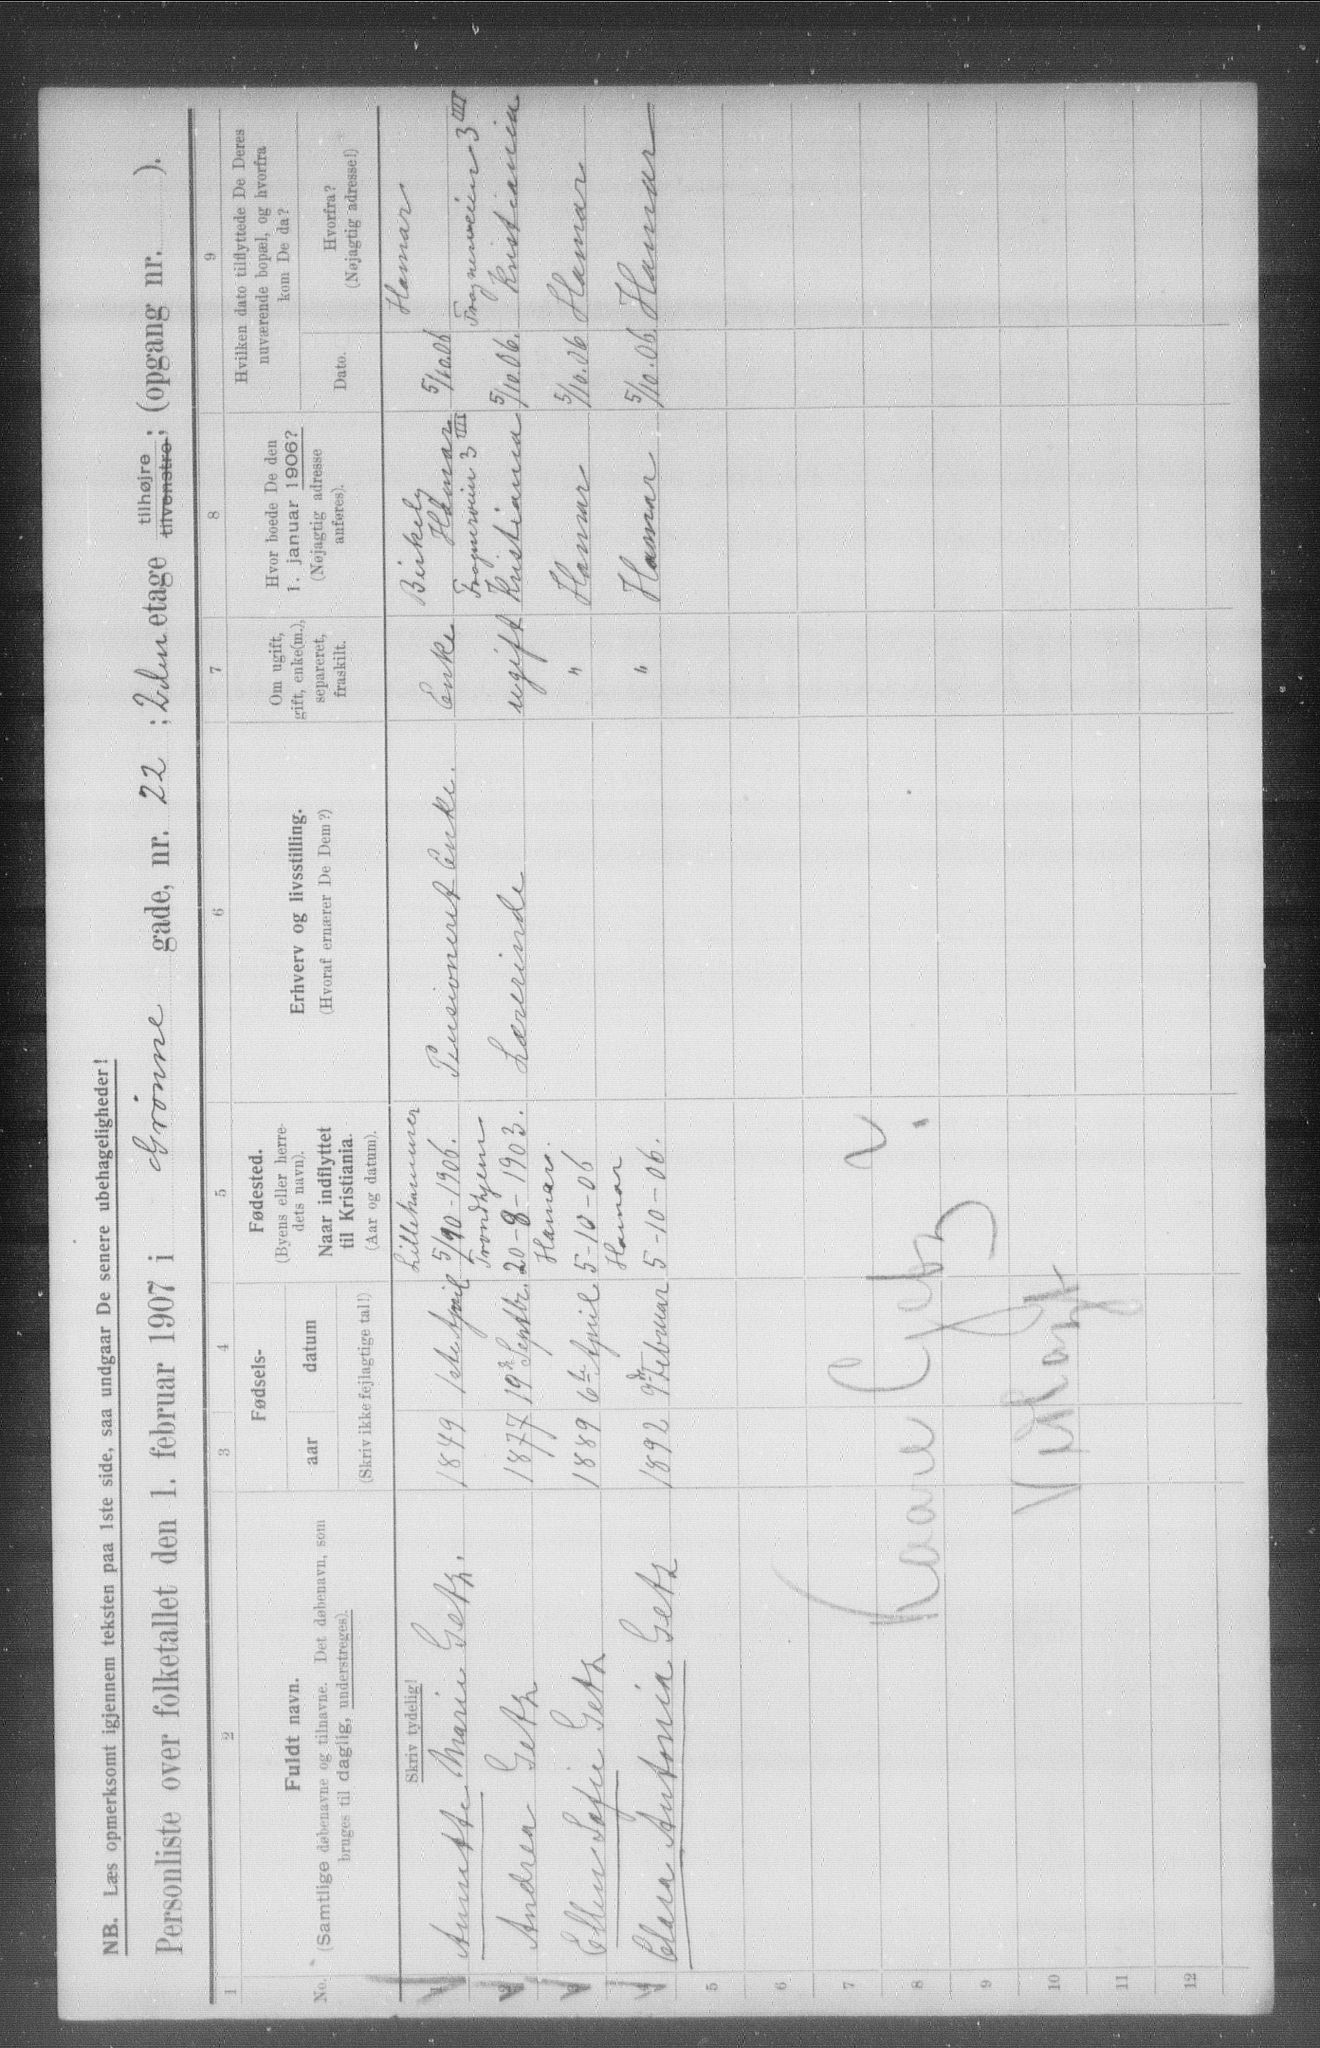 NB. Læs opmerksomt igjennem teksten paa 1ste side, saa undgaar De senere ubehageligheder!
Personliste over folketallet den 1. februar 1907 i Grønne gade, nr. 22 ; 2den etage tilhøjre tilvenstre ; (opgang nr. ).
1 2 3 4 5 6 7 8 9
No.
Fuldt navn.
(Samtlige døbenavne og tilnavne. Det døbenavn, som
bruges til daglig, understreges).
Fødsels-
aar datum
(Skriv ikke fejlagtige tal!)
Fødested.
(Byens eller herre-
dets navn).
Naar indflyttet
til Kristiania.
(Aar og datum).
Erhverv og livsstilling.
(Hvoraf ernærer De Dem?)
Om ugift,
gift, enke(m.),
separeret,
fraskilt.
Hvor boede De den
1. januar 1906?
(Nøjagtig adresse
anføres).
Hvilken dato tilflyttede De Deres
nuværende bopæl, og hvorfra
kom De da?
Dato.
Hvorfra?
(Nøjagtig adresse!)
Skriv tydelig!
Lillehammer Birkely Hamar
1 Annette Marie Getz. 1849 1ste April 5/10-1906. Pensioneret Enke. Enke Hamar 5/10.06
Trondhjem Fragnerveien 3 III Fragnerveien 3 III
2 Andrea Getz 1877 19de Septbr. 20-8-1903. Lærerinde ugift Kristiania 5/10.06. Kristiania
Hamar.
3 Ellen Sofie Getz 1889 6te April 5-10-06 " Hamar 5/10.06 Hamar
Hamar
4 Clara Antonia Getz 1892 9de Februar 5-10-06. " Hamar 5/10.06. Hamar
5
6
7
8
9
10
11
12